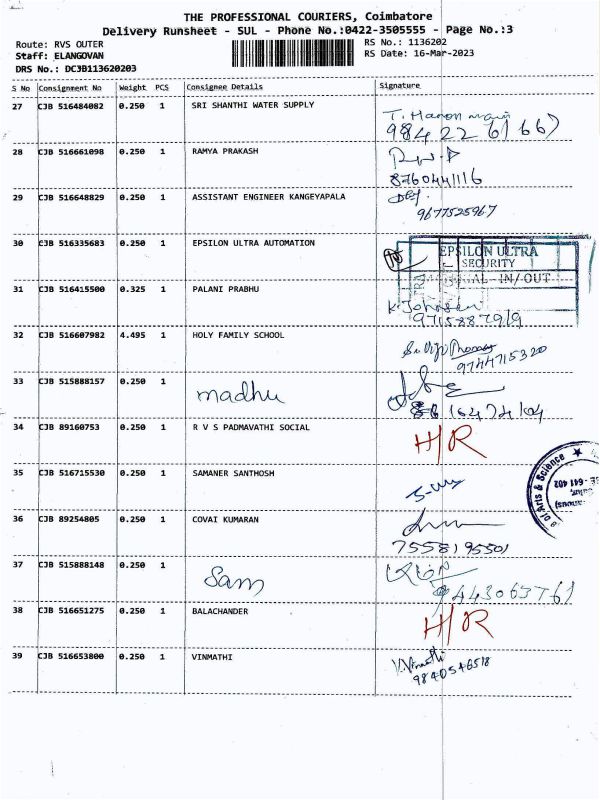 THE PROFESSIONAL COURIERS, Coimbatore
Delivery Runsheet - SUL - Phone No.:0422-3505555 - Page No.:3
Route: RVS OUTER
RS No.: 1136202
Staff: ELANGOVAN
RS Date: 16-Mar-2023
DRS No.: DCJB113620203
S No Consignment No Weight PCS Consignee Details Signature
27 CJB 516484082 0.250 1 SRI SHANTHI WATER SUPPLY
98422 61667
28 CJB 516661098 0.250 1 RAMYA PRAKASH
8760441116
29 CJB 516648829 0.250 1 ASSISTANT ENGINEER KANGEYAPALA
9677525967
30 CJB 516335683 0.250 1 EPSILON ULTRA AUTOMATION
EPSILON ULTRA
SECURITY
IN/OUT
31 CJB 516415500 0.325 1 PALANI PRABHU
9715887919
32 CJB 516607982 4.495 1 HOLY FAMILY SCHOOL
9744715320
33 CJB 515888157 0.250 1
madhu
34 CJB 89160753 0.250 1 R V S PADMAVATHI SOCIAL
H/R
35 CJB 516715530 0.250 1 SAMANER SANTHOSH
of Arts & Science
641 402
36 CJB 89254805 0.250 1 COVAI KUMARAN
7558195501
37 CJB 515888148 0.250 1
Sam
38 CJB 516651275 0.250 1 BALACHANDER
H/R
39 CJB 516653800 0.250 1 VINMATHI
V.Vinmathi
9840546518